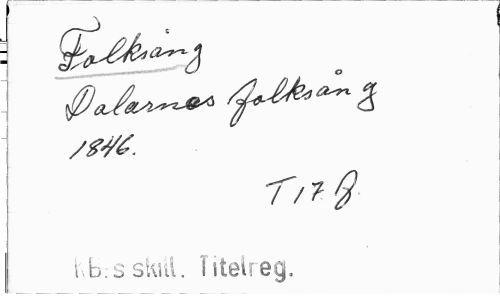 Folksång
Dalarnas folksång
1846.
T 17 f.
KB:s skill. Titelreg.